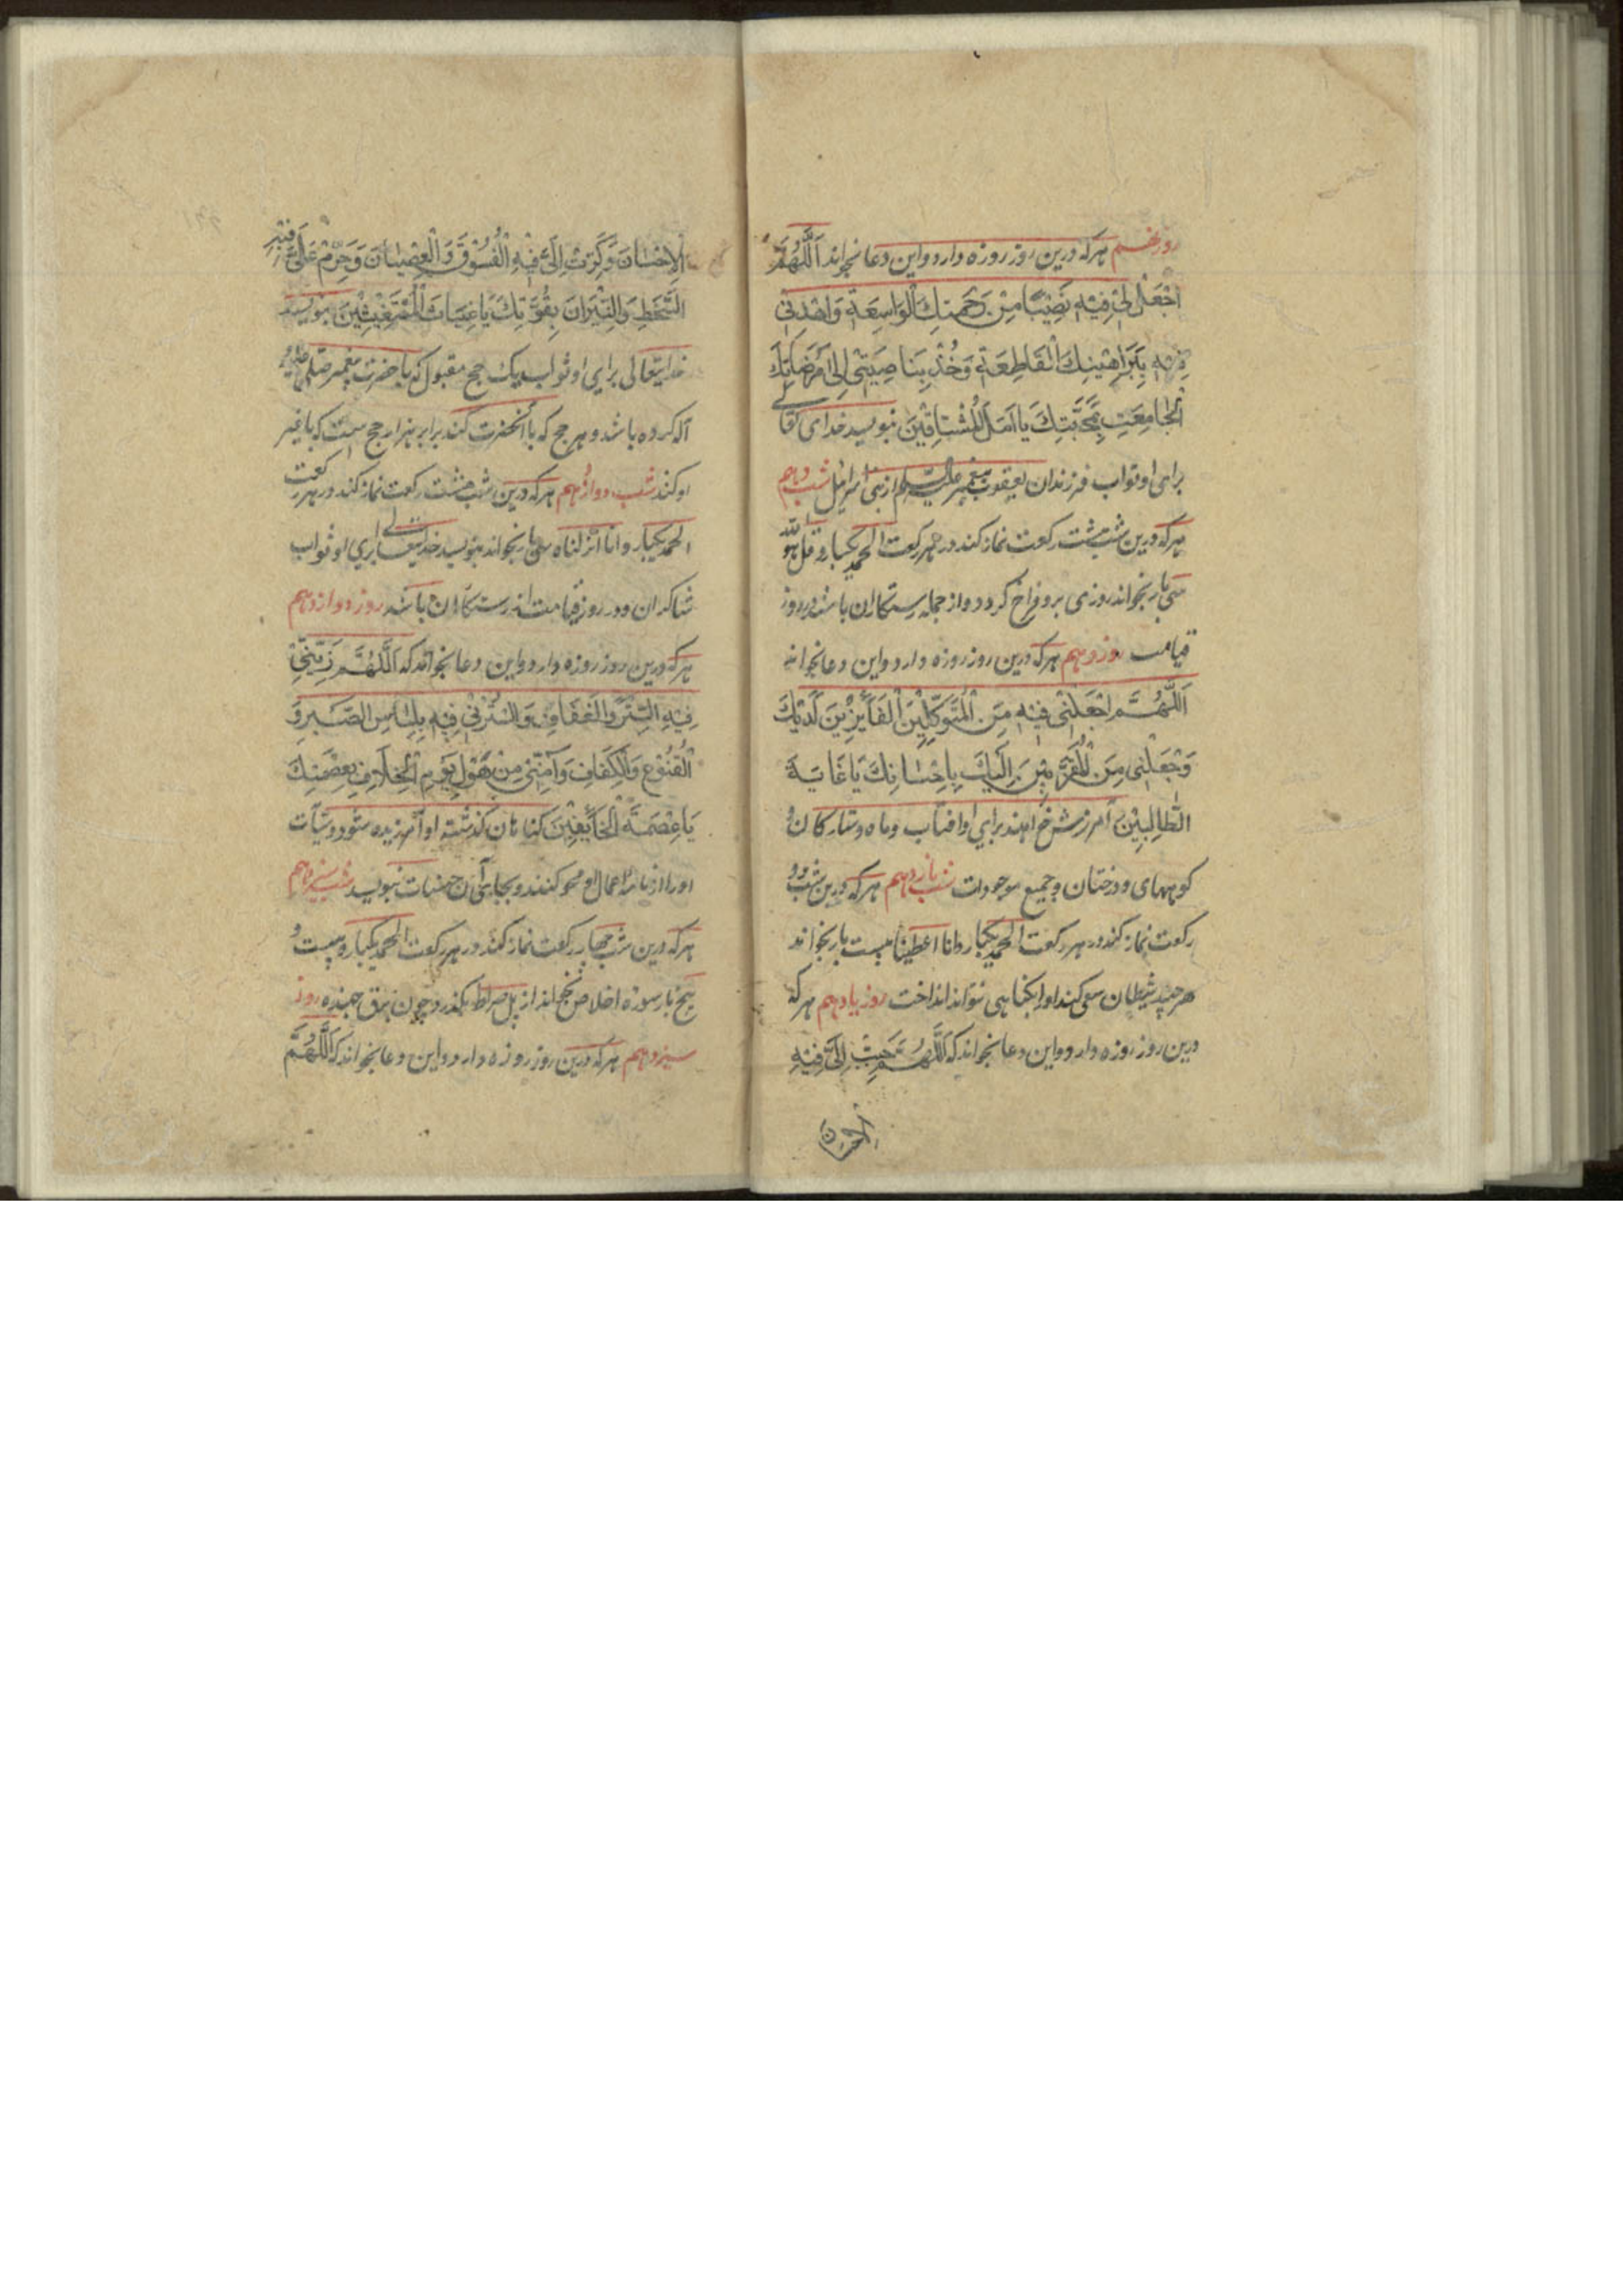 روز نهم هرکه درین روز روزه دارد و این دعا بخواند اَللّٰهُمَّ
اجْعَلْ لِیْ فِیْهِ نَصِیْبًا مِنْ رَحْمَتِكَ الْوَاسِعَةِ وَاهْدِنِیْ
فِیْهِ بِبَرَاهِیْنِكَ الْقَاطِعَةِ وَخُذْ بِنَاصِیَتِیْ اِلٰی مَرْضَاتِكَ
الْجَامِعَتِ بِمَحَبَّتِكَ یَا اَمَلَ الْمُشْتَاقِیْنَ بنویسد خدای تعالے
برای او ثواب فرزندان یعقوب پیغمبر علیه السلام از بنی اسرائیل شب دهم
هرکه درین شب هشت رکعت نماز کند در هر رکعت الحمد یکبار و قل هو الله
سی بار بخواند روزی برو فراخ گردد و از جمله رستکاران باشد در روز
قیامت روز دهم هرکه درین روز روزه دارد و این دعا بخواند
اَللّٰهُمَّ اجْعَلْنِیْ فِیْهِ مِنَ الْمُتَوَكِّلِیْنَ الْفَآئِزِیْنَ لَدَیْكَ
وَجْعَلْنِی مِنَ الْمُقَرَّبِیْنَ اِلَیْكَ بِاِحْسَانِكَ یَا غَایَةَ
الطَّالِبِیْنَ آمرزش خواهند برای او افتاب و ماه و ستارکان و
کوههای و درختان و جمیع موجودات شب یازدهم هرکه درین شب دو
رکعت نماز کند در هر رکعت الحمد یکبار و انا اعطینا بیست بار بخواند
هرچند شیطان سعی کند او را بکناهی نتواند انداخت روز یازدهم هرکه
درین روز روزه دارد و این دعا بخواند که اَللّٰهُمَّ حَبِّبْ اِلَیَّ فِیْهِ
الْاِحْسَانَ وَكَرِّهْ اِلَیَّ فِیْهِ الْفُسُوْقَ وَالْعِصْیَانَ وَحَرِّمْ عَلَیَّ فِیْهِ
السَّخَطَ وَالنِّیْرَانَ بِقُوَّتِكَ یَا غِیَاثَ الْمُسْتَغِیْثِیْنَ بنویسد
خدایتعالی برای او ثواب یک حج مقبول که با حضرت پیغمبر صلی
آله کرده باشد و هر حج که با آنحضرت کند برابر هزار حج است که با غیر
او کند شب دوازدهم هرکه درین شب هشت رکعت نماز کند در هر رکعت
الحمد یکبار و انا انزلناه سی بار بخواند بنویسد خدایتعالی برای او ثواب
شاکران و در روز قیامت از رستکاران باشد روز دوازدهم
هرکه درین روز روزه دارد و این دعا بخواند که اَللّٰهُمَّ زَیِّنِّیْ
فِیْهِ السِّتْرَ وَالْعَفَافَ وَاسْتُرْنِیْ فِیْهِ بِلِبَاسِ الصَّبْرِ وَ
الْقُنُوْعِ وَالْكَفَافِ وَآمِنِّیْ مِنْ هَوْلِ یَوْمِ الْخِلَافِ بِعِصْمَتِكَ
یَا عِصْمَةَ الْخَآئِفِیْنَ کناهان کذشته او آمرزیده شود و سیآت
او را از نامه اعمال او محو کنند و بجای آن حسنات بنویسد شب سیزدهم
هرکه درین شب چهار رکعت نماز کند در هر رکعت الحمد یکبار و بیست و
پنج بار سوره اخلاص بخواند از پل صراط بکذرد چون برق جهنده روز
سیزدهم هرکه درین روز روزه دارد و این دعا بخواند که اَللّٰهُمَّ